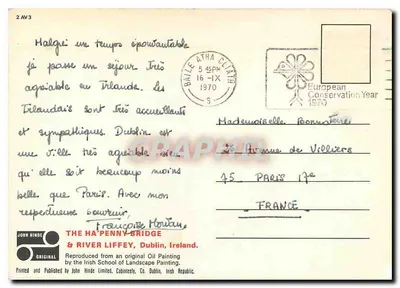 2 AV 3
Malgré un temps épouvantable
je passe un séjour très
agréable en Irlande. Les
Irlandais sont très accueillants
et sympathiques Dublin est
une ville très agréable bien
qu'elle soit beaucoup moins
belle que Paris. Avec mon
respectueux souvenir,
Françoise
BAILE ATHA CLIATH
5 30PM
16-IX
1970
S
European
Conservation Year
1970
Mademoiselle
2 Avenue de Villiers
75 PARIS 17e
FRANCE
JOHN HINDE
ORIGINAL
THE HA'PENNY BRIDGE
& RIVER LIFFEY, Dublin, Ireland.
Reproduced from an original Oil Painting
by the Irish School of Landscape Painting.
Printed and Published by John Hinde Limited, Cabinteely, Co. Dublin, Irish Republic.